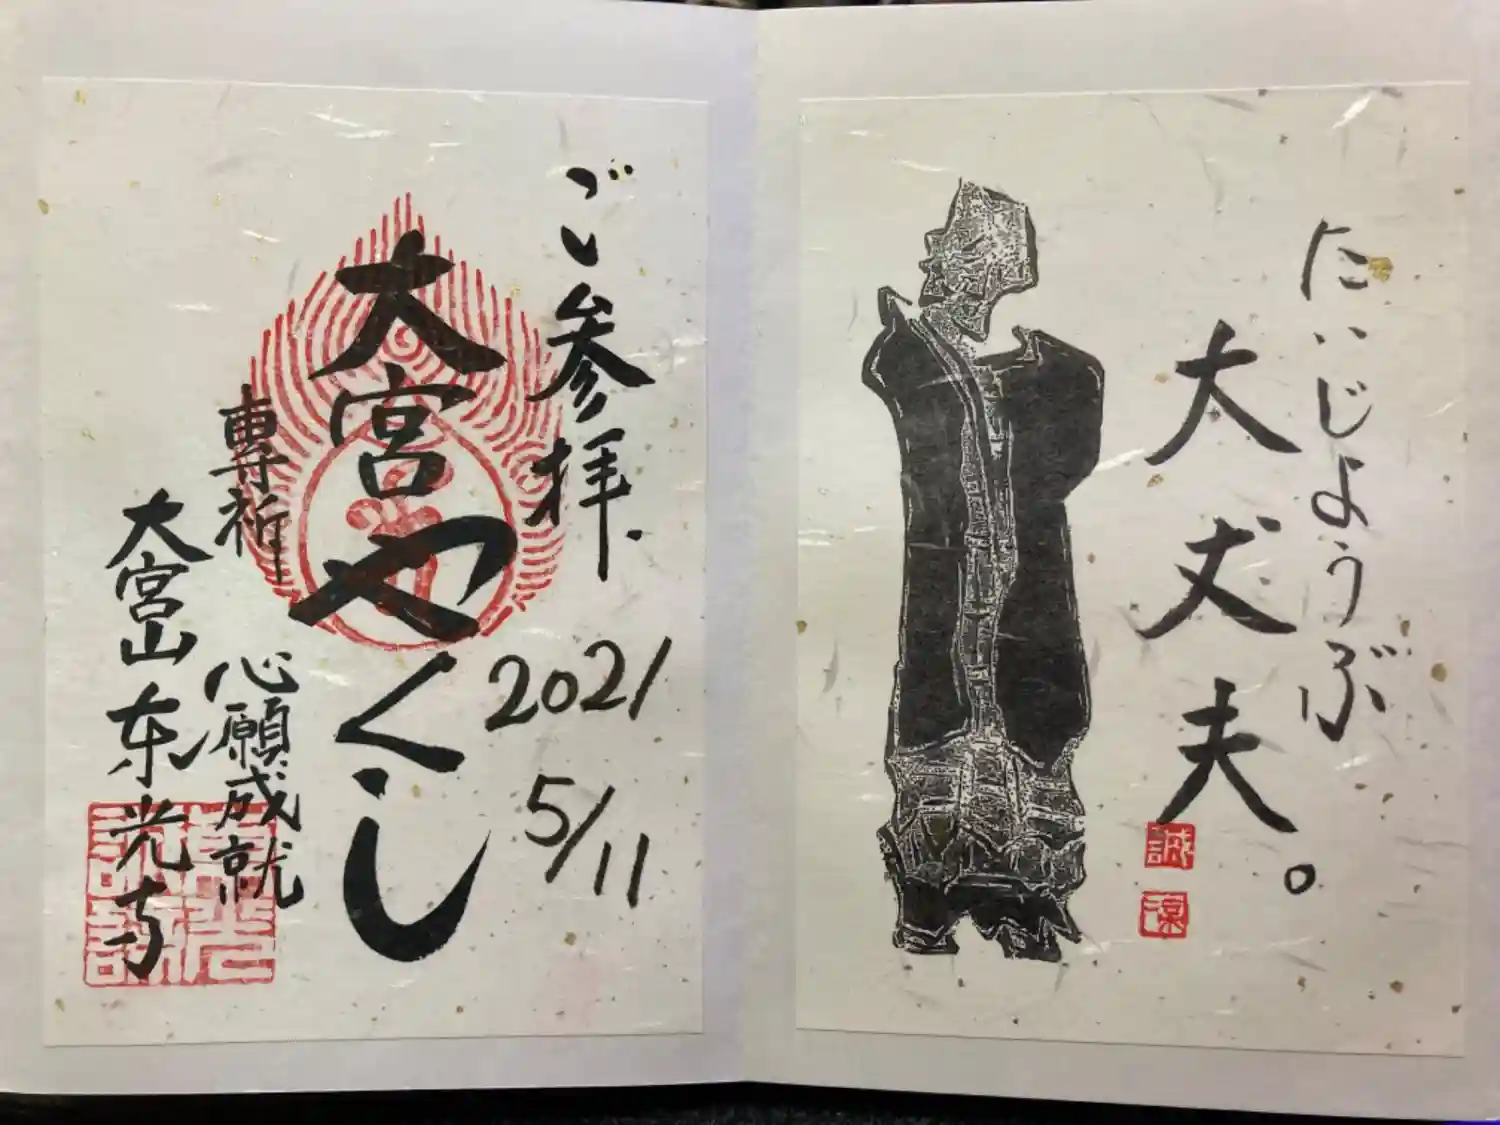 たいじょうぶ
大丈夫。
誠
ご参拝.
2021
5/11
大宮やくし
専祈
心願成就
大宮山东光寺